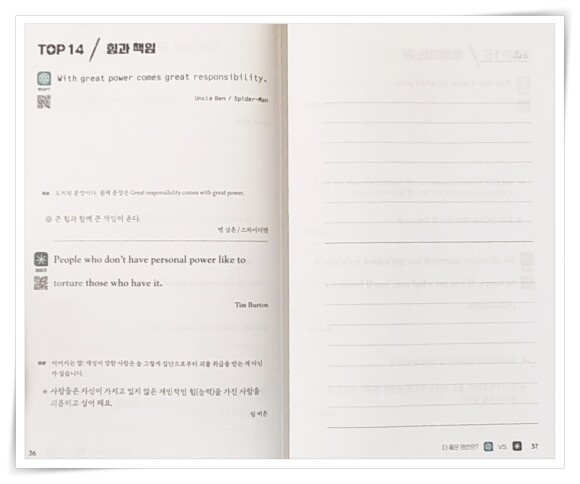 TOP 14 / 힘과 책임
With great power comes great responsibility.
Uncle Ben / Spider-Man
도치된 문장이다. 원래 문장은 Great responsibility comes with great power.
큰 힘과 함께 큰 책임이 온다.
벤 삼촌 / 스파이더맨
People who don't have personal power like to
torture those who have it.
Tim Burton
이어지는 말: 개성이 강한 사람은 늘 그렇게 집단으로부터 괴물 취급을 받는 게 아닌
가 싶습니다.
사람들은 자신이 가지고 있지 않은 개인적인 힘(능력)을 가진 사람을
괴롭히고 싶어 해요.
팀 버튼
36
더 좋은 명언은? VS 37